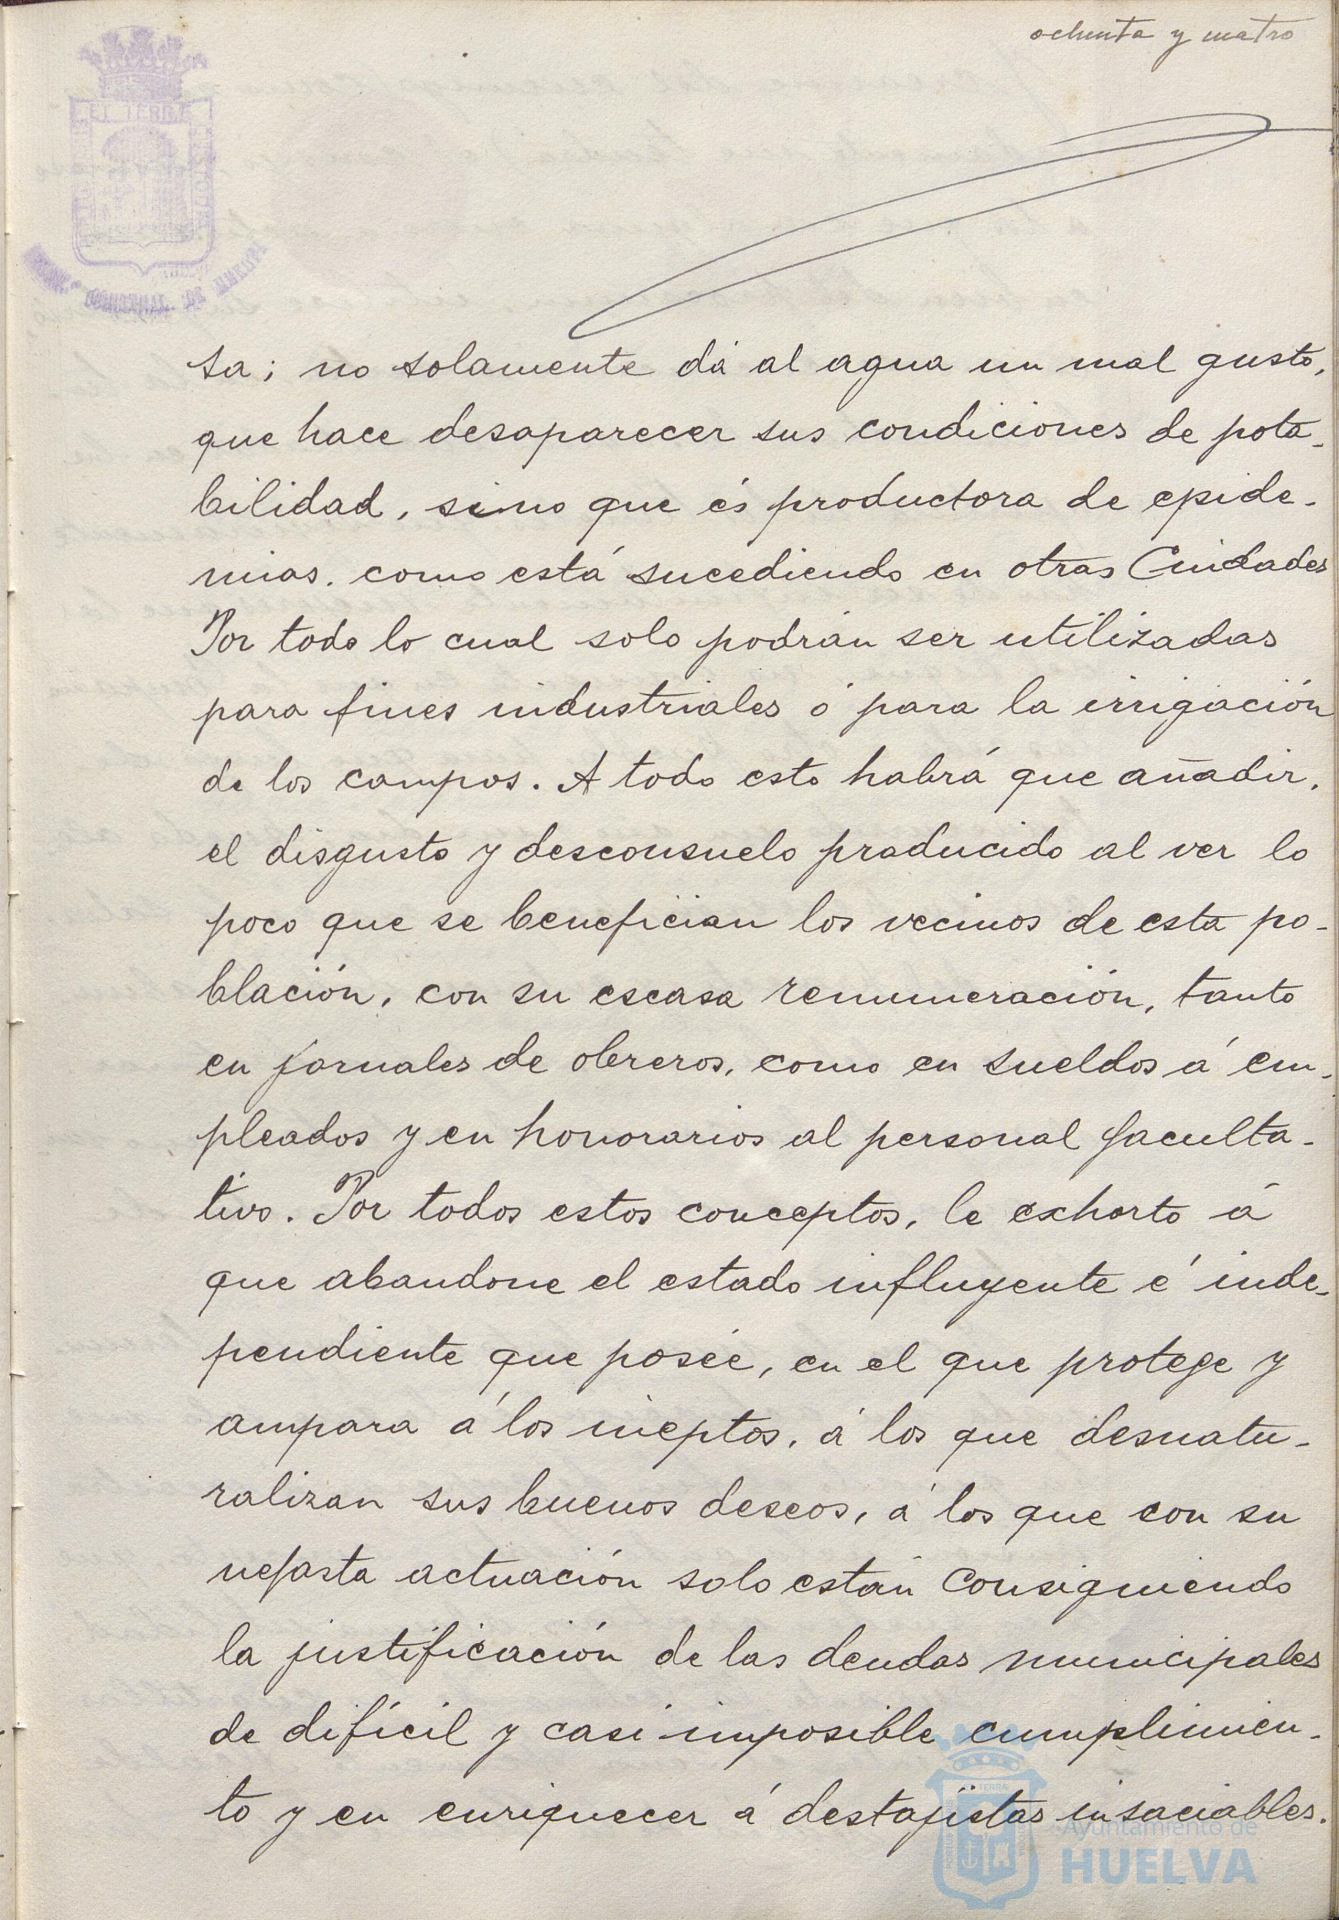 ochenta y cuatro
sa; no solamente dá al agua un mal gusto,
que hace desaparecer sus condiciones de pota-
bilidad, sino que és productora de epide-
mias. como está sucediendo en otras Ciudades
Por todo lo cual solo podrán ser utilizadas
para fines industriales ó para la irrigación
de los campos. A todo esto habrá que añadir,
el disgusto y desconsuelo producido al ver lo
poco que se benefician los vecinos de esta po-
blación, con su escasa remuneración, tanto
en jornales de obreros, como en sueldos á em-
pleados y en honorarios al personal faculta-
tivo. Por todos estos conceptos, le exhorto á
que abandone el estado influyente é inde-
pendiente que posée, en el que protege y
ampara á los ineptos, á los que desnatu-
ralizan sus buenos deseos, á los que con su
nefasta actuación solo están consiguiendo
la justificación de las deudas municipales
de difícil y casi imposible cumplimien-
to y en enriquecer á destajistas insaciables.
Ayuntamiento de
HUELVA